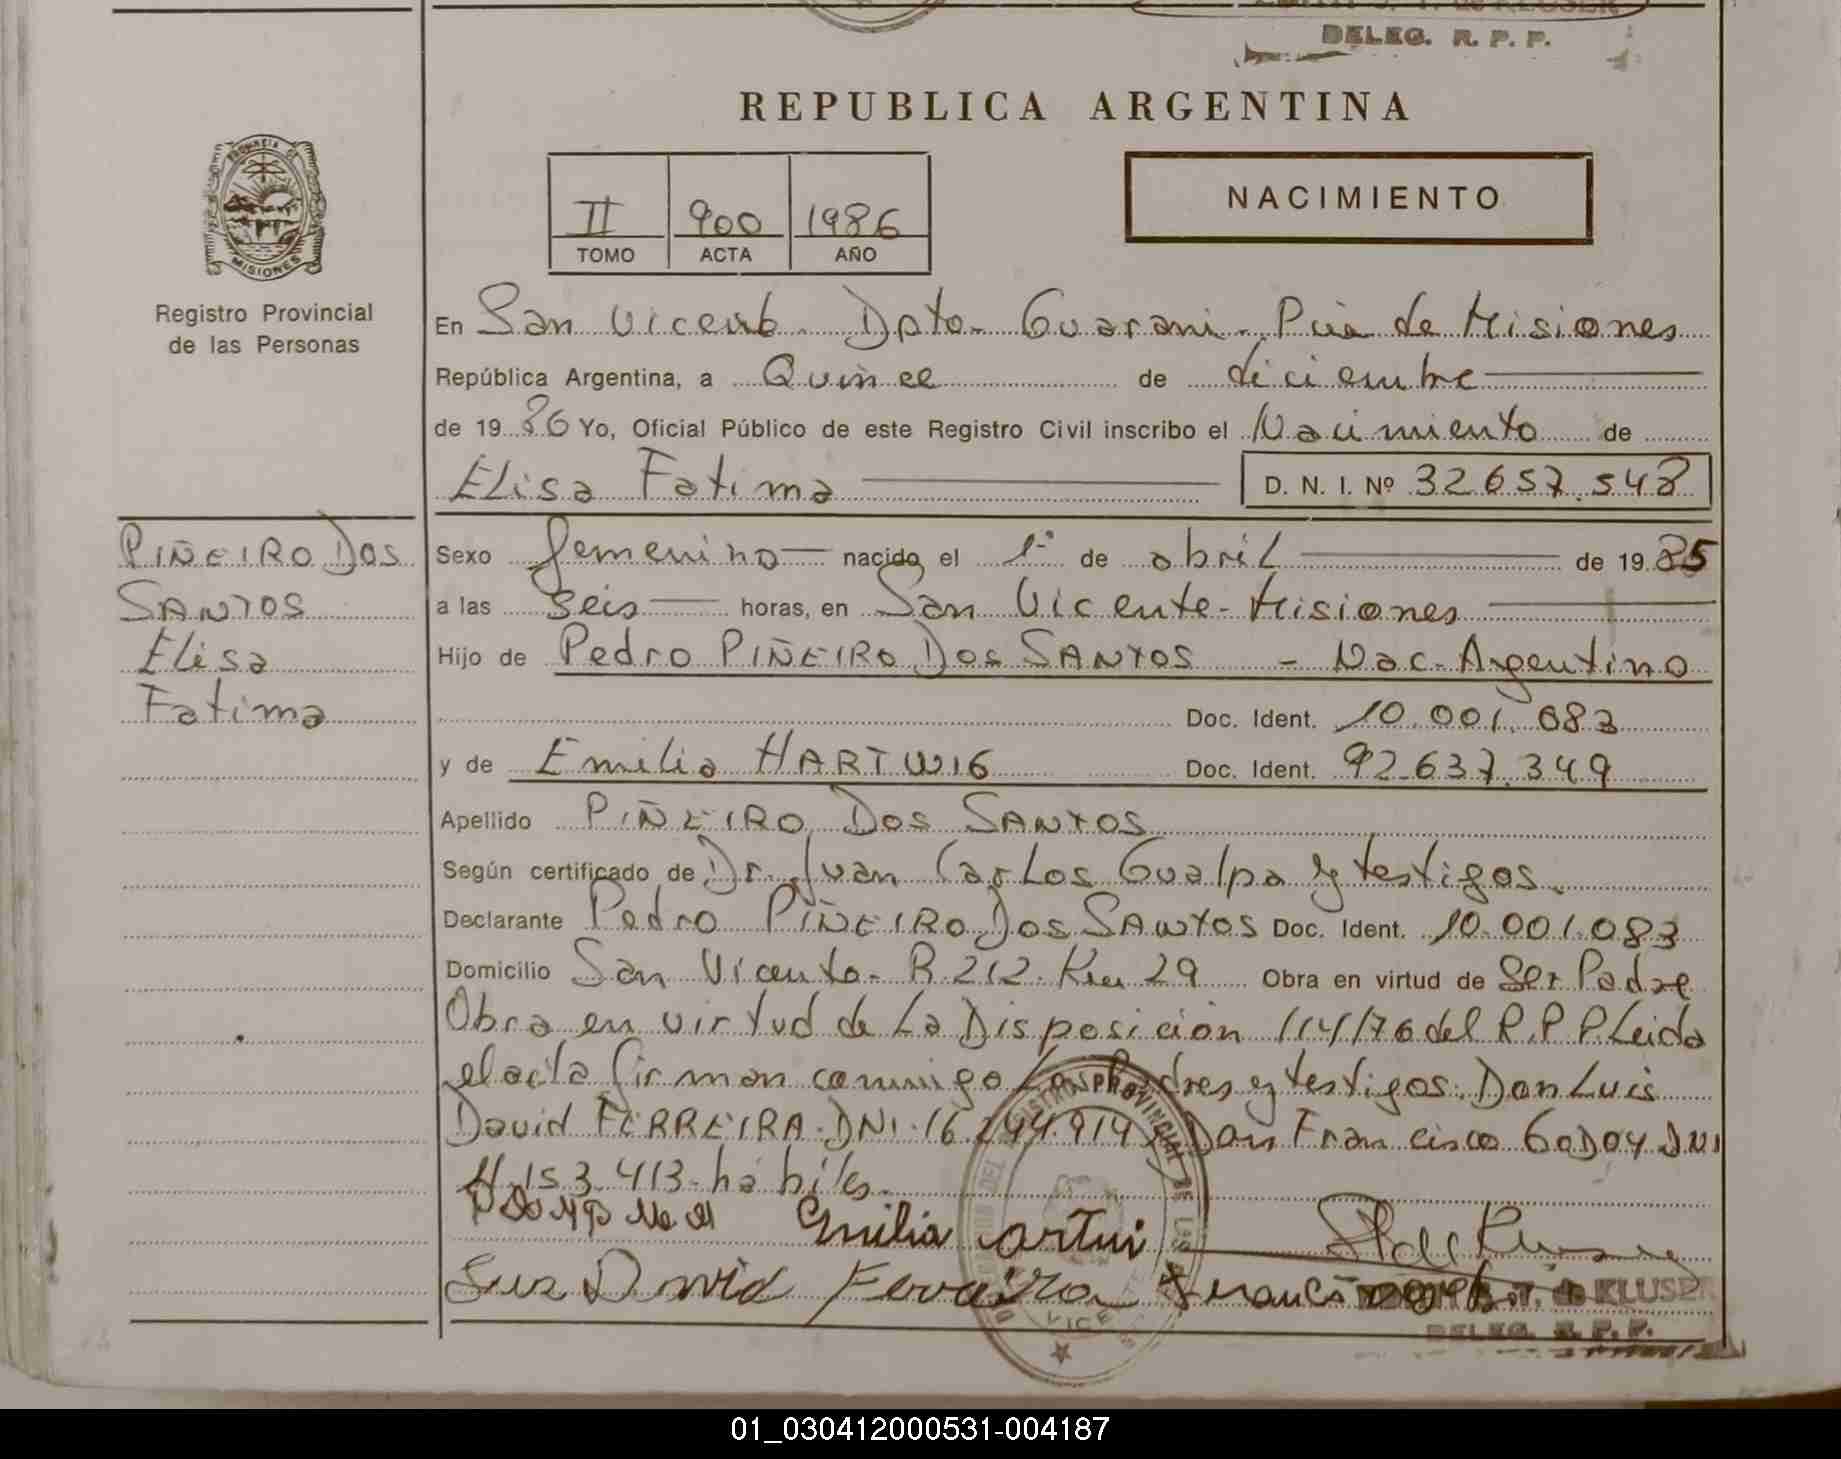 DELEG. R. P. P.
REPUBLICA ARGENTINA
II 900 1986
TOMO ACTA AÑO
NACIMIENTO
PROVINCIA DE
MISIONES
Registro Provincial
de las Personas
En San Vicente Dpto- Guarani- Pcia de Misiones
República Argentina, a Quince de diciembre
de 19 86 Yo, Oficial Público de este Registro Civil inscribo el Nacimiento de
Elisa Fatima D. N. I. Nº 32.657.548
PIÑEIRO DOS
SANTOS
Elisa
Fatima
Sexo femenino nacido el 1º de abril de 19 85
a las seis horas, en San Vicente- Misiones
Hijo de Pedro PIÑEIRO DOS SANTOS - Nac- Argentino
Doc. Ident. 10.001.083
y de Emilia HARTWIG Doc. Ident. 92.637.349
Apellido PIÑEIRO DOS SANTOS
Según certificado de Dr. Juan Carlos Gualpa y testigos.
Declarante Pedro PIÑEIRO DOS SANTOS Doc. Ident. 10.001.083
Domicilio San Vicente- R. 212. Km 29 Obra en virtud de Ser Padre
Obra en virtud de La Disposicion 114/76 del R.P.P. Leida
el acta firman conmigo Los Padres y testigos: Don Luis
David FERREIRA- DNI- 16.244.914 y Don Francisco GODOY DNI
153.413- habiles.
Emilia artui
Luis David Ferreira
KLUSER
DELEG. R. P. P.
01_030412000531-004187